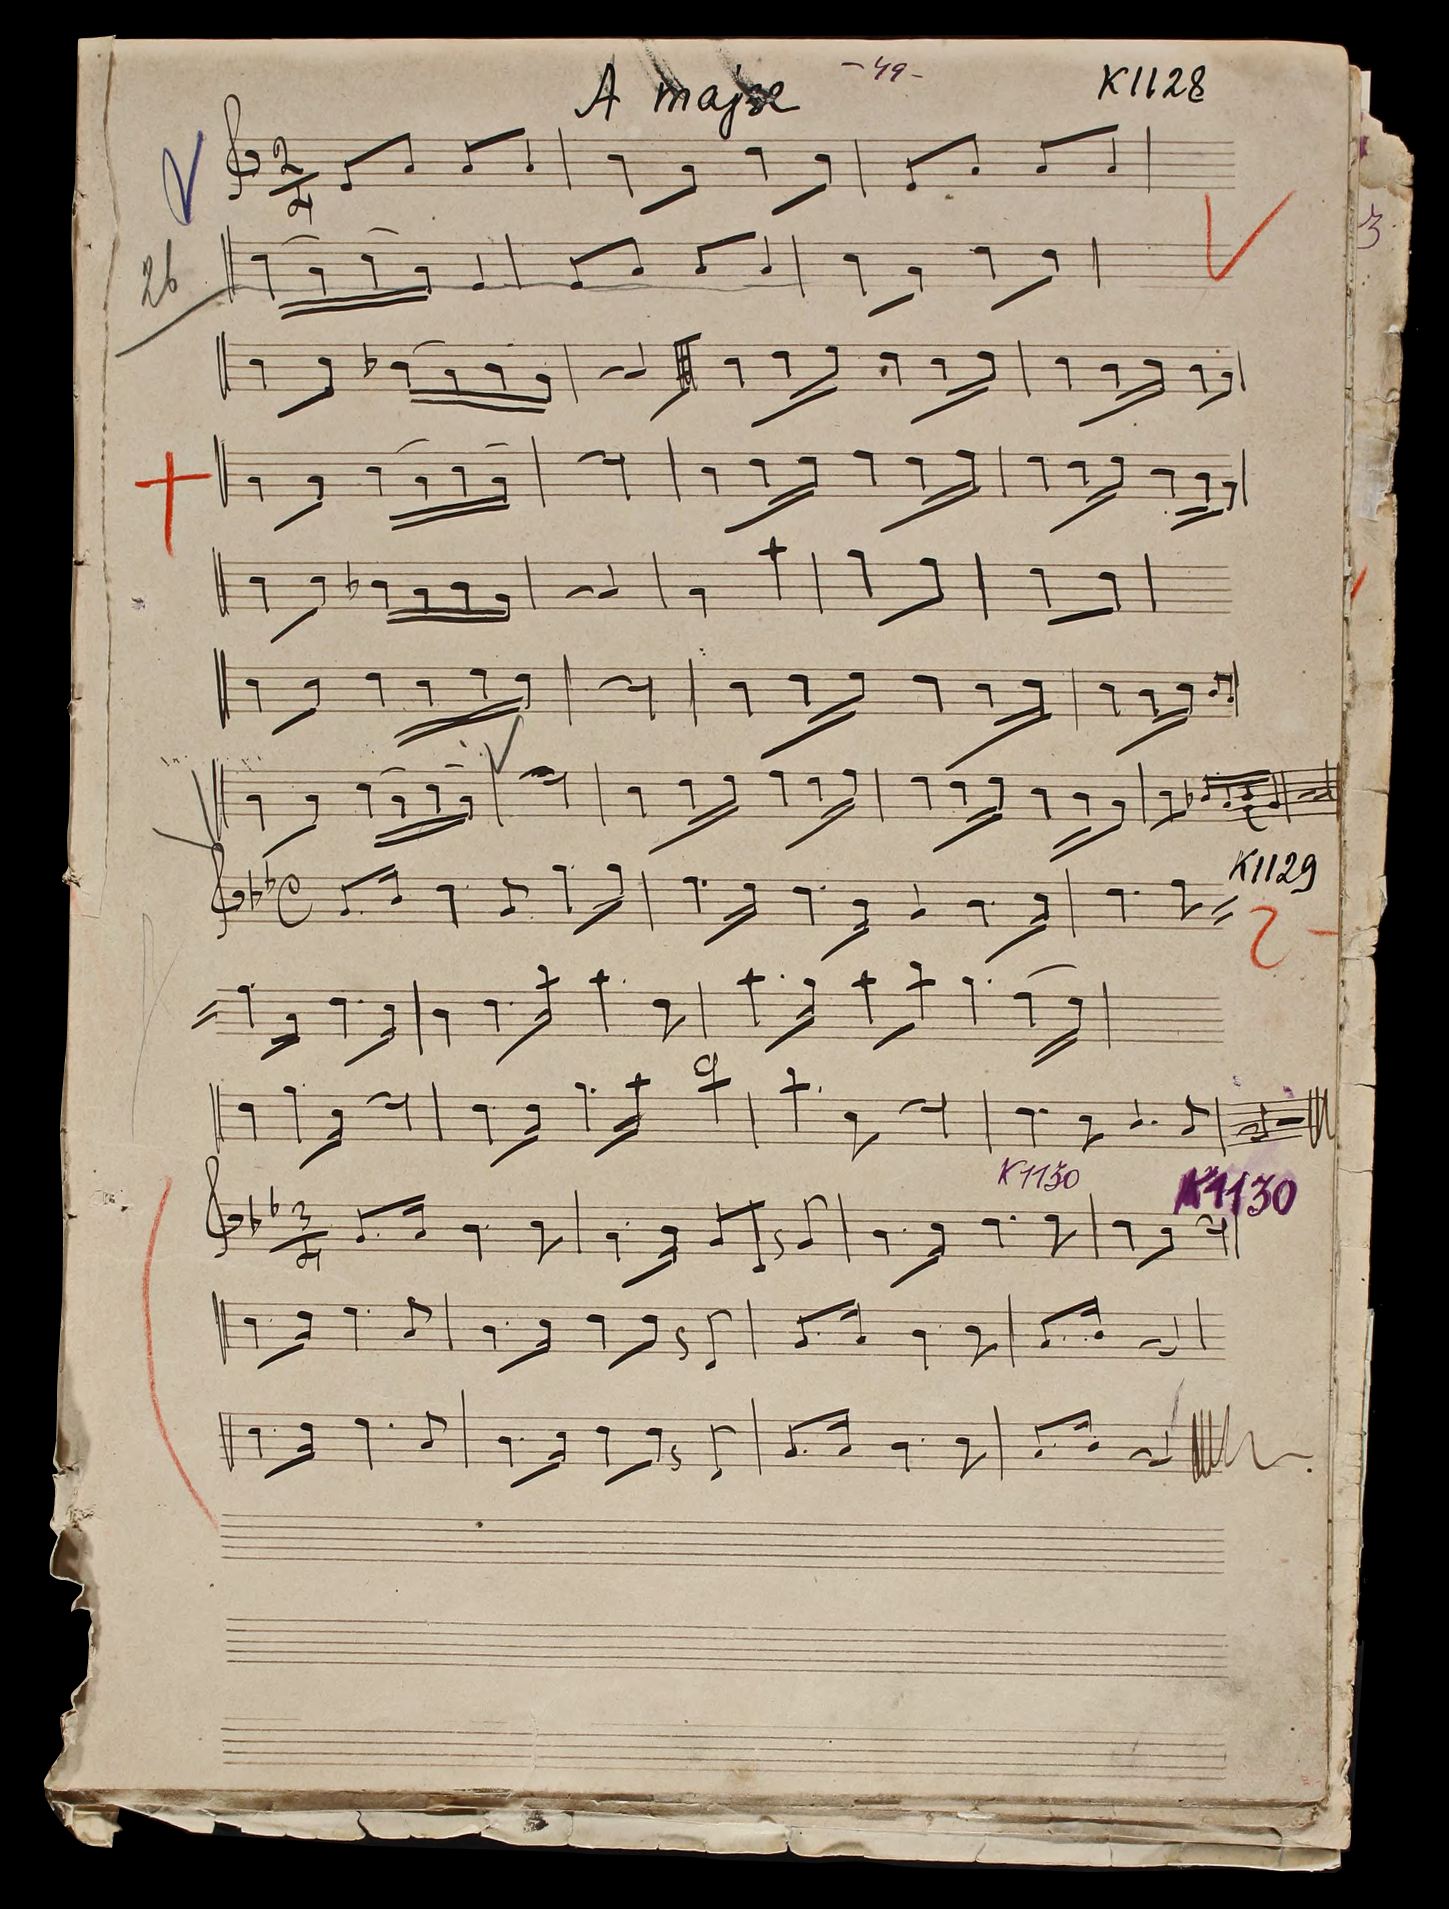 A majse -49- K1128
2/4
26
K1129
K1130 K1130
3/4